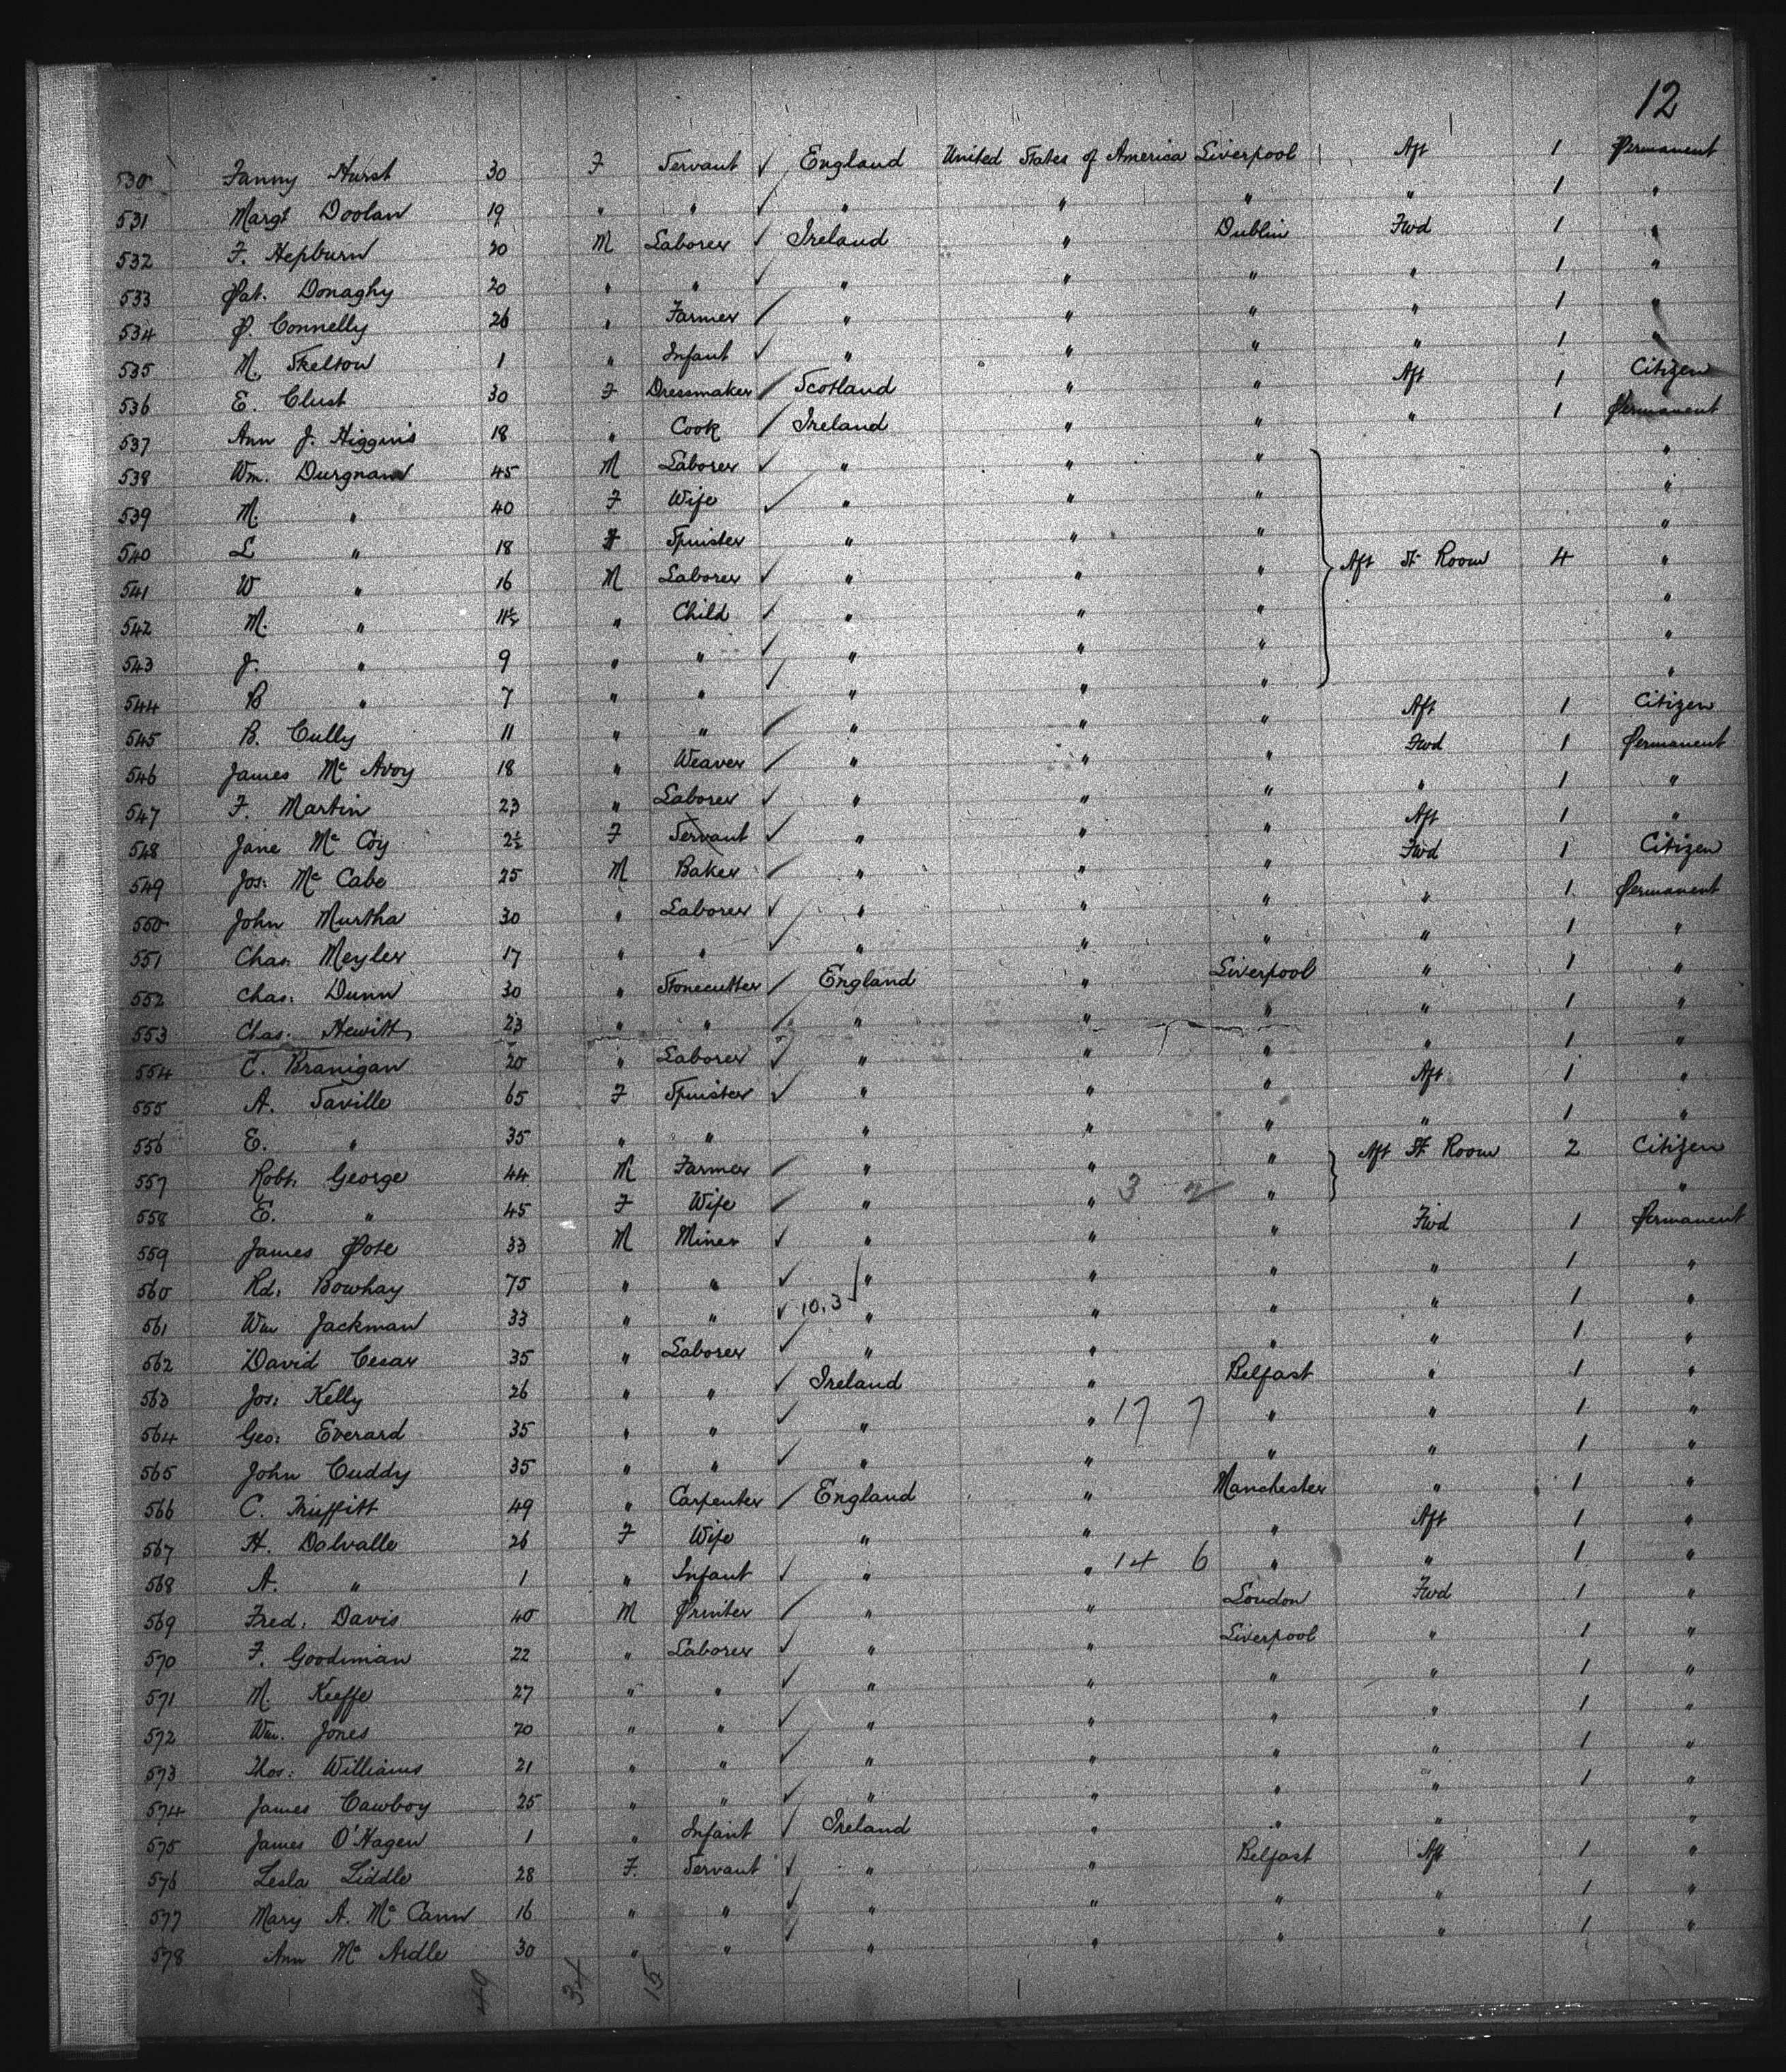 12
530 Fanny Hurst 30 F Servant ✓ England United States of America Liverpool Aft 1 Permanent
531 Margt Doolan 19 " " ✓ " " " " 1 "
532 F. Hepburn 20 M Laborer ✓ Ireland " Dublin Fwd 1 "
533 Pat. Donaghy 20 " " ✓ " " " " 1 "
534 P. Connelly 26 " Farmer / " " " " 1 "
535 M. Skelton 1 " Infant ✓ " " " " 1 "
536 E. Clust 30 F Dressmaker / Scotland " " Aft 1 Citizen
537 Ann J. Higgins 18 " Cook / Ireland " " " 1 Permanent
538 Wm. Durgnan 45 M Laborer ✓ " " " "
539 M. " 40 F Wife ✓ " " " "
540 L " 18 F Spinster " " " "
541 W " 16 M Laborer ✓ " " " Aft St Room 4 "
542 M. " 11½ " Child ✓ " " " "
543 J. " 9 " " ✓ " " " "
544 B " 7 " " ✓ " " " "
545 B. Cully 11 " " / " " " Aft 1 Citizen
546 James Mc Avoy 18 " Weaver / " " " Fwd 1 Permanent
547 F. Martin 23 " Laborer ✓ " " " " 1 "
548 Jane Mc Coy 2½ F Servant ✓ " " " Aft 1 "
549 Jos: Mc Cabe 25 M Baker / " " " Fwd 1 Citizen
550 John Murtha 30 " Laborer ✓ " " " " 1 Permanent
551 Chas. Meyler 17 " " ✓ " " " " 1 "
552 Chas. Dunn 30 " Stonecutter / England " Liverpool " 1 "
553 Chas. Hewitt 23 " " / " " " " 1 "
554 C. Branigan 20 " Laborer ✓ " " " " 1 "
555 A. Saville 65 F Spinster ✓ " " " Aft 1 "
556 E. " 35 " " " " " " 1 "
557 Robt. George 44 M Farmer / " " " Aft St Room 2 Citizen
558 E. " 45 F Wife / " " 3 2 " "
559 James Pote 33 M Miner ✓ " " " Fwd 1 Permanent
560 Rd. Bowhay 75 " " ✓ " " " " 1 "
561 Wm Jackman 33 " " ✓ 10.3 " " " " 1 "
562 David Cesar 35 " Laborer ✓ " " " " 1 "
563 Jos: Kelly 26 " " ✓ Ireland " Belfast " 1 "
564 Geo: Everard 35 " " ✓ " " 17 7 " " 1 "
565 John Cuddy 35 " " ✓ " " " " 1 "
566 C. Truffitt 49 " Carpenter / England " Manchester " 1 "
567 H. Dalvalle 26 F Wife " " " Aft 1 "
568 A. " 1 " Infant ✓ " " 14 6 " " 1 "
569 Fred. Davis 40 M Printer / " " London Fwd 1 "
570 F. Goodman 22 " Laborer ✓ " " Liverpool " 1 "
571 M. Keeffe 27 " " ✓ " " " " 1 "
572 Wm. Jones 20 " " ✓ " " " " 1 "
573 Thos: Williams 21 " " ✓ " " " " 1 "
574 James Cawboy 25 " " ✓ " " " " 1 "
575 James O'Hagen 1 " Infant ✓ Ireland " " " "
576 Lesla Liddle 28 F. Servant ✓ " " Belfast Aft 1 "
577 Mary A. Mc Cann 16 " " ✓ " " " " 1 "
578 Ann Mc Ardle 30 " " ✓ " " " " 1 "
49 34 15